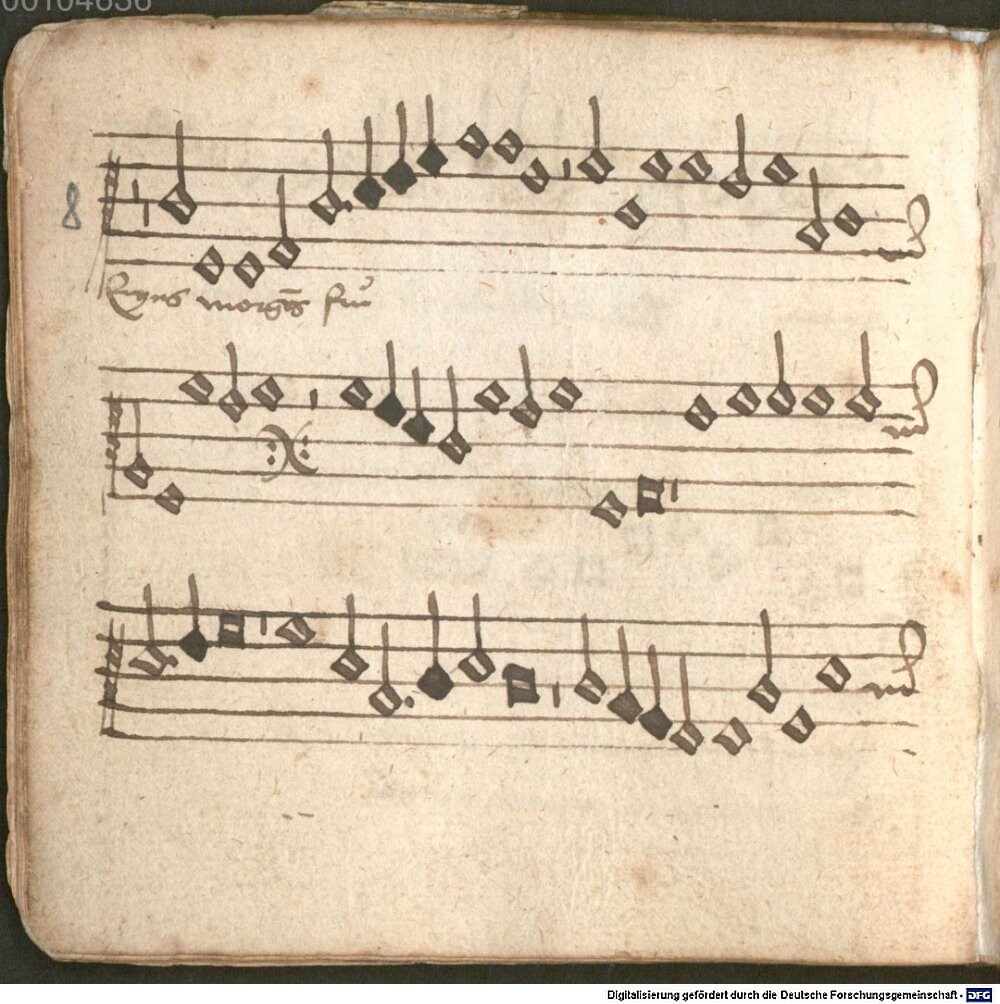 00104636
8
Eyns morgēs fru
Digitalisierung gefördert durch die Deutsche Forschungsgemeinschaft - DFG